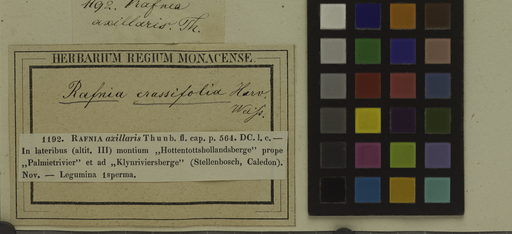 1192. Rafnia
axillaris. Th.
HERBARIUM REGIUM MONACENSE.
Rafnia crassifolia Harv.
1192. RAFNIA axillaris Thunb. fl. cap. p. 564. DC. l. c. —
In lateribus (altit. III) montium „Hottentottshollandsberge" prope
„Palmietrivier" et ad „Klynriviersberge" (Stellenbosch, Caledon).
Nov. — Legumina 1sperma.